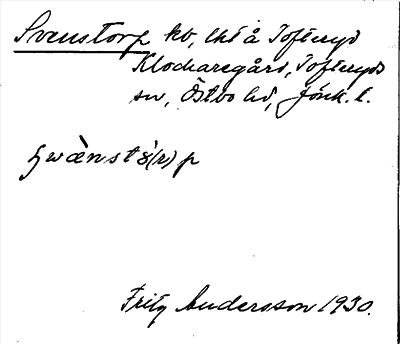 Svenstorp kv, lht å Tofteryd
Klockaregård, Tofteryds
sn, Östbo hd, Jönk. l.
Fritz Andersson 1930.